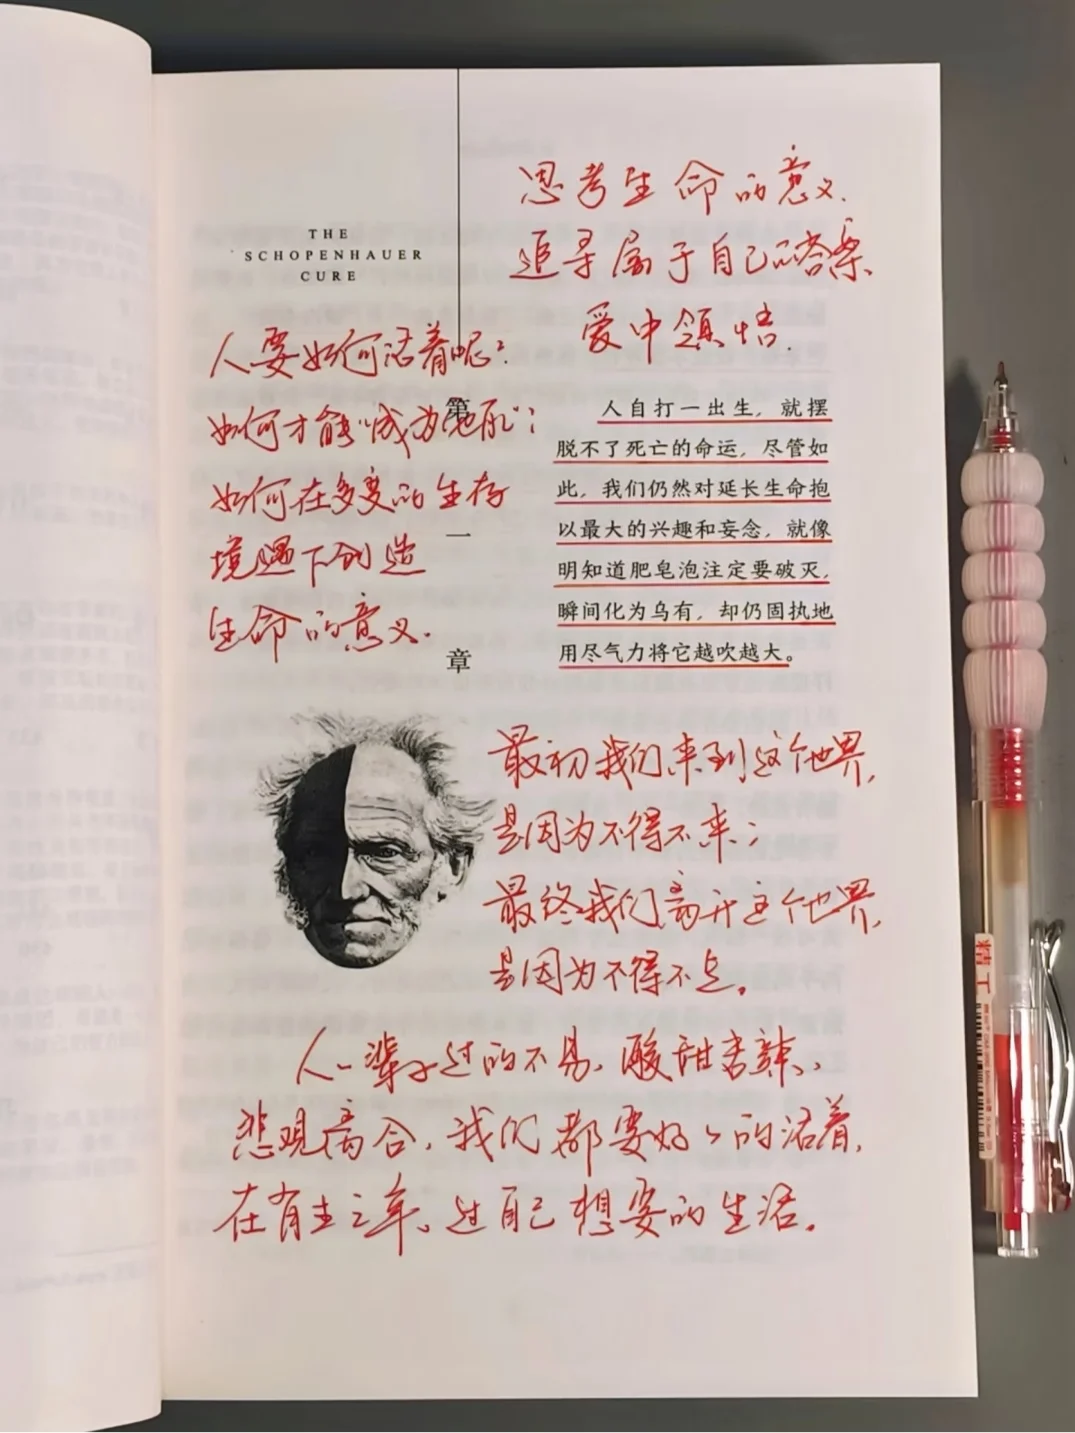 思考生命的意义.
追寻属于自己的答案、
爱中领悟.
THE
SCHOPENHAUER
CURE
人要如何活着呢?
如何才能“成为他自己”;
如何在多变的生存
境遇下创造
生命的意义.
第
一
章
人自打一出生，就摆
脱不了死亡的命运，尽管如
此，我们仍然对延长生命抱
以最大的兴趣和妄念，就像
明知道肥皂泡注定要破灭，
瞬间化为乌有，却仍固执地
用尽气力将它越吹越大。
最初我们来到这个世界,
是因为不得不来;
最终我们离开这个世界,
是因为不得不走。
人一辈子过的不易、酸甜苦辣、
悲观离合, 我们都要好好的活着,
在有生之年、过自己想要的生活。
精工